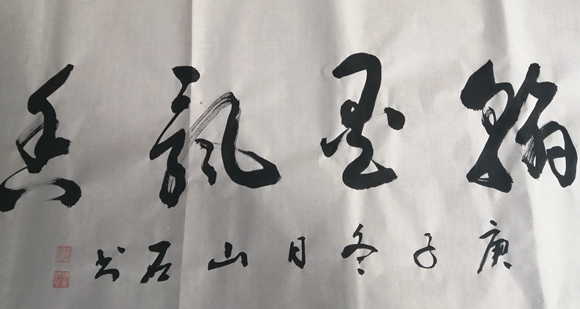 翰墨飘香
庚子冬月山石书